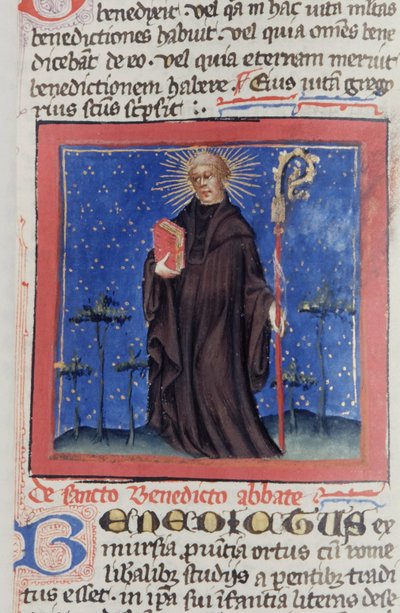 benedixit . vel q̄a in hac vita m̄ltas
benedictiones habuit . vel quia om̄es bene
dicebāt de eo . vel quia eternam meruit
benedictionem habere . Eius vitā grego
rius sc̄us sc̄psit : .
de sancto Benedicto abbate
BENEDICTUS ex
nursia p̄uītia ortus cū rome
liƀalibꝫ studijs a pentibꝫ tradi
tus esset . in ip̄a sui īfantia literas dese